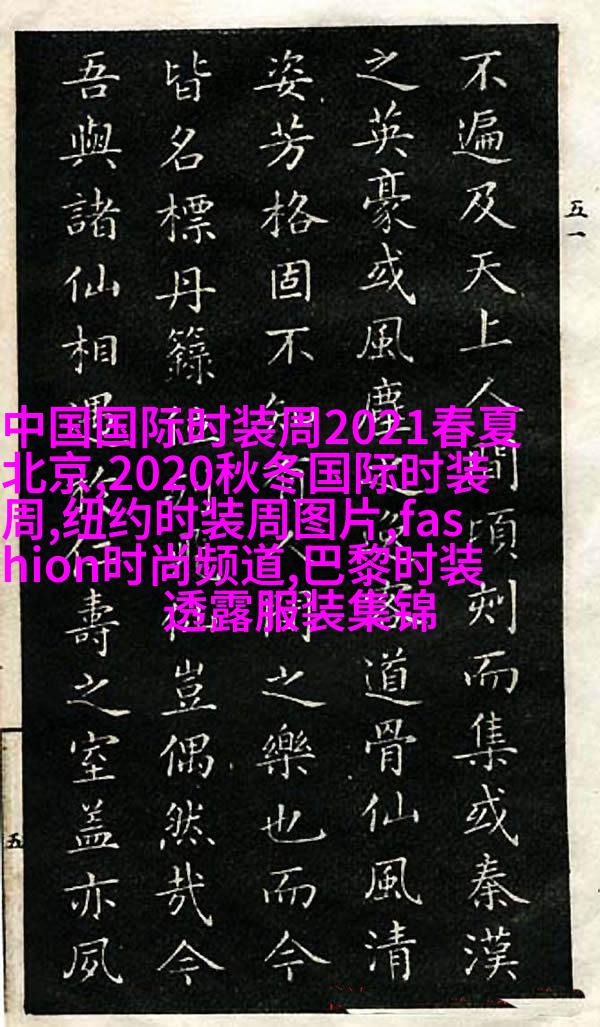 不遍及天上人間頃刻而集或秦漢
之英豪或風塵之道骨仙風清
姿芳格固不人間之樂也而今
皆名標丹籙豈偶然哉今
吾與諸仙相遇於仁壽之室蓋亦夙
五一
五
中国国际时装周2021春夏
北京,2020秋冬国际时装
周,纽约时装周图片,fas
hion时尚频道,巴黎时装
透露服装集锦